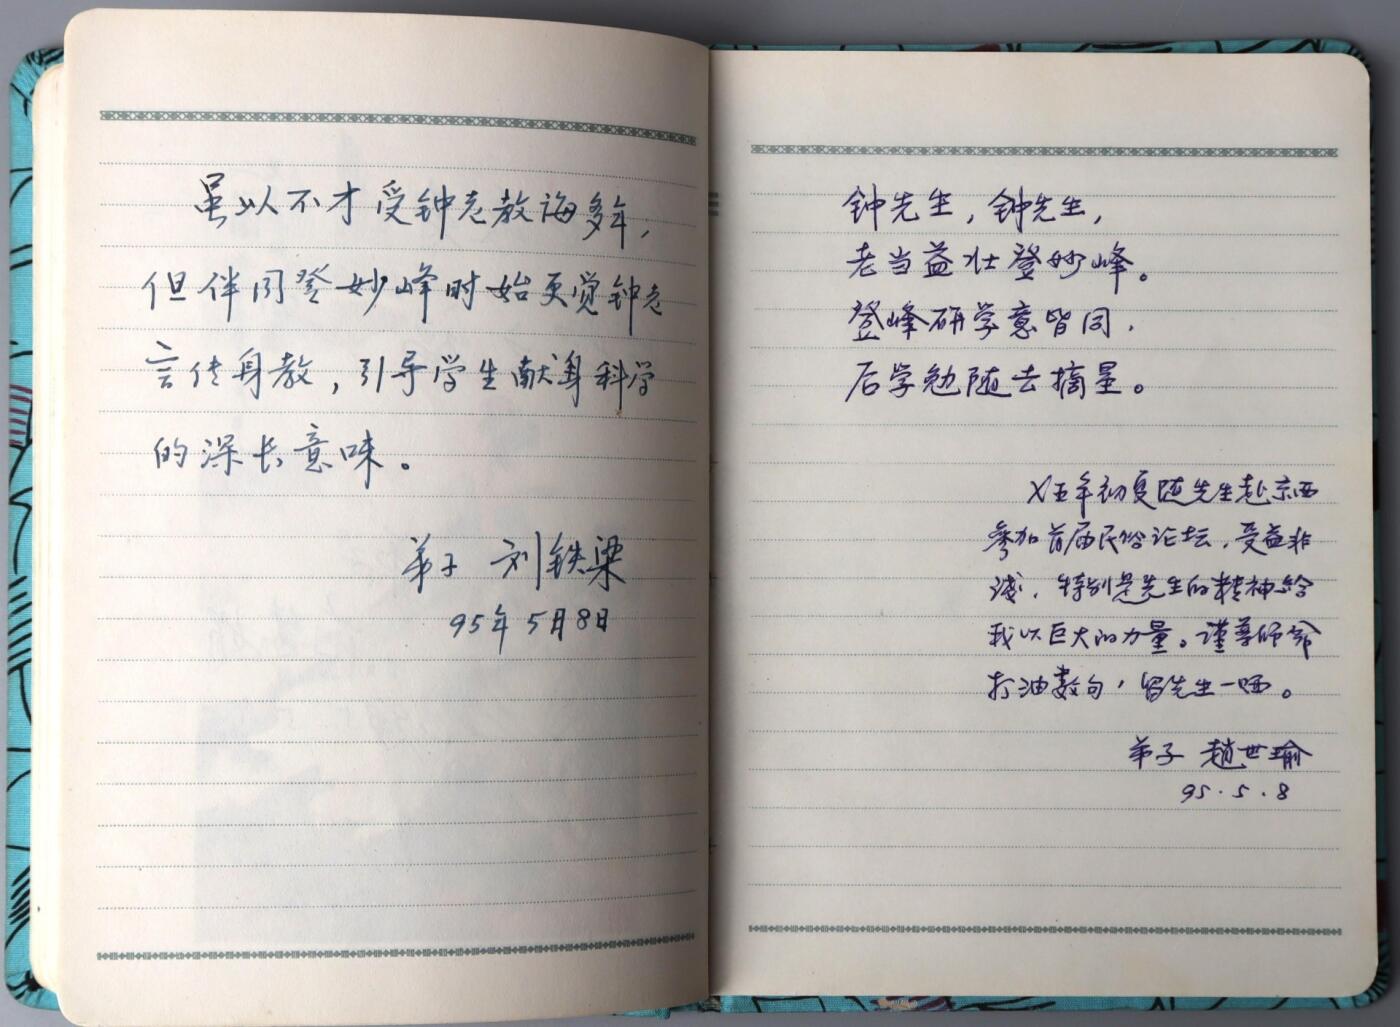 虽以不才受钟老教诲多年，
但伴同登妙峰时始更觉钟老
言传身教，引导学生献身科学
的深长意味。
弟子 刘铁梁
95年5月8日
钟先生，钟先生，
老当益壮登妙峰。
登峰研学意皆同，
后学勉随去摘星。
乂五年初夏随先生赴京西
参加首届民俗论坛，受益非
浅，特别是先生的精神给
我以巨大的力量。谨尊师命
打油数句，留先生一哂。
弟子 赵世瑜
95.5.8